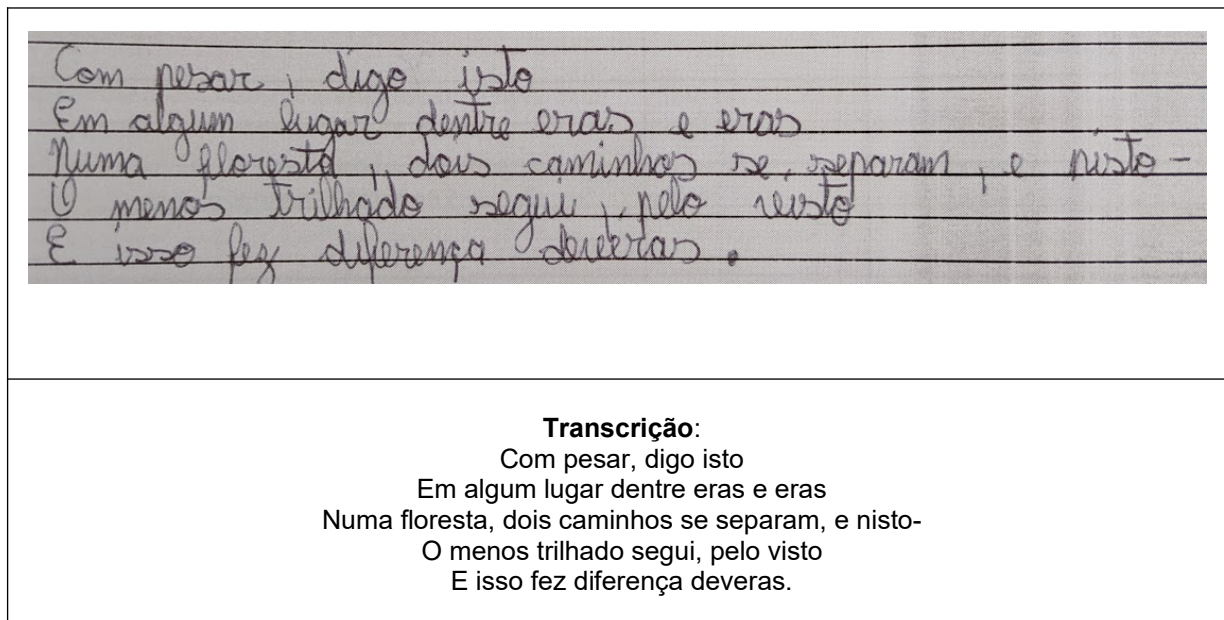 Com pesar, digo isto
Em algum lugar dentre eras e eras
Numa floresta, dois caminhos se separam, e nisto-
O menos trilhado segui, pelo visto
E isso fez diferença deveras.
Transcrição:
Com pesar, digo isto
Em algum lugar dentre eras e eras
Numa floresta, dois caminhos se separam, e nisto-
O menos trilhado segui, pelo visto
E isso fez diferença deveras.